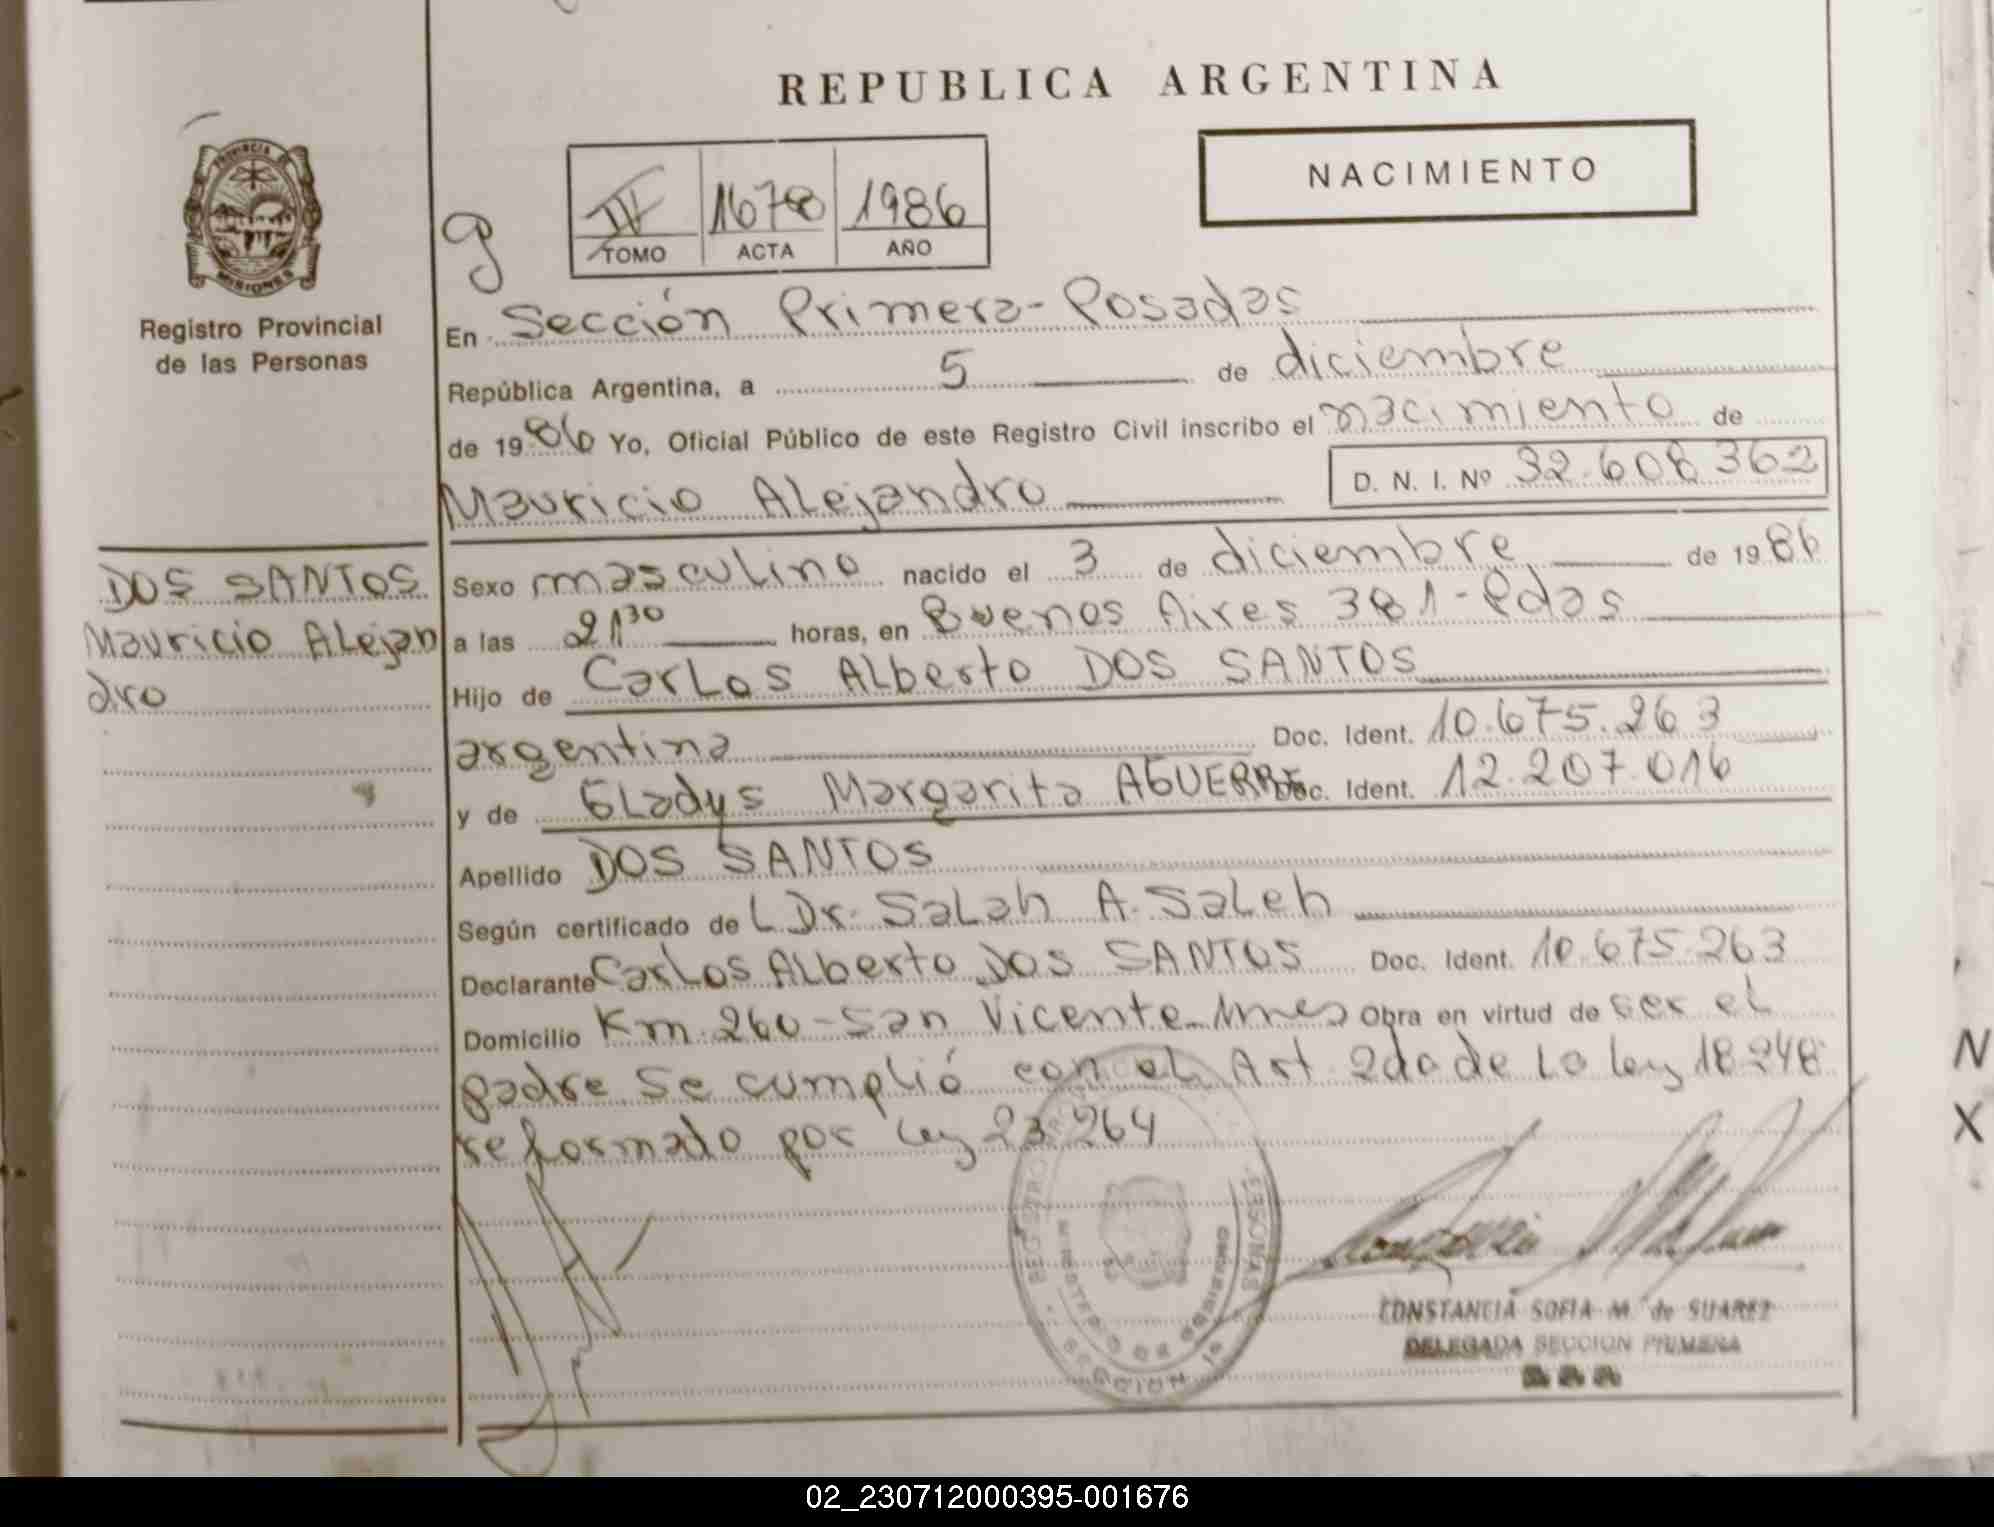 REPUBLICA ARGENTINA
NACIMIENTO
PROVINCIA DE
MISIONES
Registro Provincial
de las Personas
IV 1678 1986
TOMO ACTA AÑO
En Sección Primera-Posadas
República Argentina, a 5 de diciembre
de 1986 Yo, Oficial Público de este Registro Civil inscribo el nacimiento de
Mauricio Alejandro D. N. I. Nº 32.608.362
DOS SANTOS
Mauricio Alejan
dro
Sexo masculino nacido el 3 de diciembre de 1986
a las 21 30 horas, en Buenos Aires 381-Pdas
Hijo de Carlos Alberto DOS SANTOS
argentina Doc. Ident. 10.675.263
y de Gladys Margarita AGUERRE Doc. Ident. 12.207.016
Apellido DOS SANTOS
Según certificado de L Dr. Salah A. Saleh
Declarante Carlos Alberto DOS SANTOS Doc. Ident. 10.675.263
Domicilio Km. 260-San Vicente-Mnes Obra en virtud de ser el
padre. Se cumplió con el Art. 2do de la ley 18.248
reformado por Ley 23.264
CONSTANCIA SOFIA M. de SUAREZ
DELEGADA SECCION PRIMERA
N
X
02_230712000395-001676